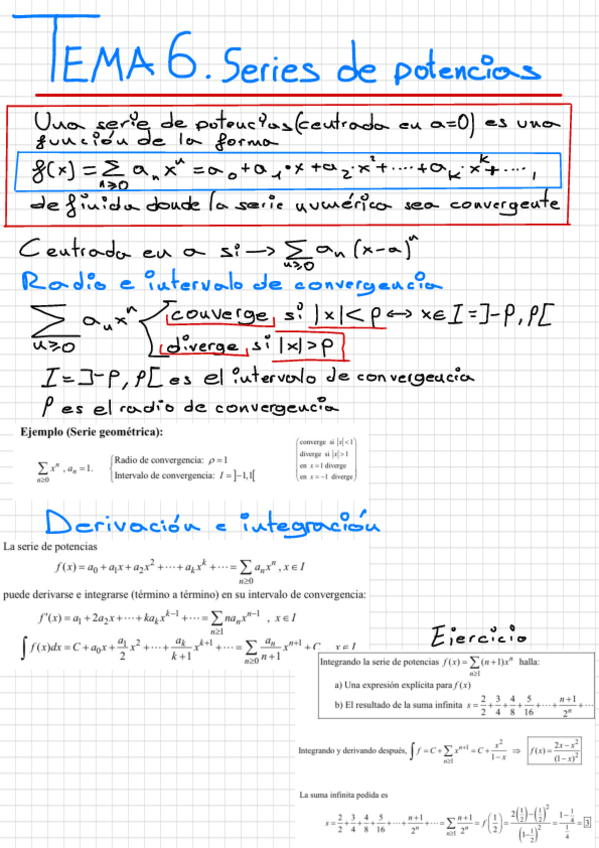 TEMA 6. Series de potencias
Una serie de potencias (centrada en a=0) es una
función de la forma
f(x) = ∑_{n≥0} a_n x^n = a_0 + a_1·x + a_2·x^2 + ··· + a_k·x^k + ···,
definida donde la serie numérica sea convergente
Centrada en a si → ∑_{n≥0} a_n (x-a)^n
Radio e intervalo de convergencia
∑_{n≥0} a_n x^n
converge si |x| < ρ ↔ x∈I = ]-ρ, ρ[
diverge si |x| > ρ
I = ]-ρ, ρ[ es el intervalo de convergencia
ρ es el radio de convergencia
Ejemplo (Serie geométrica):
∑_{n≥0} x^n , a_n = 1.
Radio de convergencia: ρ = 1
Intervalo de convergencia: I = ]-1,1[
converge si |x| < 1
diverge si |x| > 1
en x = 1 diverge
en x = -1 diverge
Derivación e integración
La serie de potencias
f(x) = a_0 + a_1x + a_2x^2 + ··· + a_kx^k + ··· = ∑_{n≥0} a_nx^n , x ∈ I
puede derivarse e integrarse (término a término) en su intervalo de convergencia:
f'(x) = a_1 + 2a_2x + ··· + ka_kx^{k-1} + ··· = ∑_{n≥1} na_nx^{n-1} , x ∈ I
∫ f(x)dx = C + a_0x + a_1/2 x^2 + ··· + a_k/(k+1) x^{k+1} + ··· = ∑_{n≥0} a_n/(n+1) x^{n+1} + C x ∈ I
Ejercicio
Integrando la serie de potencias f(x) = ∑_{n≥1} (n+1)x^n halla:
a) Una expresión explícita para f(x)
b) El resultado de la suma infinita s = 2/2 + 3/4 + 4/8 + 5/16 + ··· + (n+1)/2^n + ···
Integrando y derivando después, ∫ f = C + ∑_{n≥1} x^{n+1} = C + x^2/(1-x) ⇒ f(x) = (2x - x^2)/(1-x)^2
La suma infinita pedida es
s = 2/2 + 3/4 + 4/8 + 5/16 + ··· + (n+1)/2^n + ··· = ∑_{n≥1} (n+1)/2^n = f(1/2) = (2(1/2) - (1/2)^2)/(1 - 1/2)^2 = (1 - 1/4)/(1/4) = 3